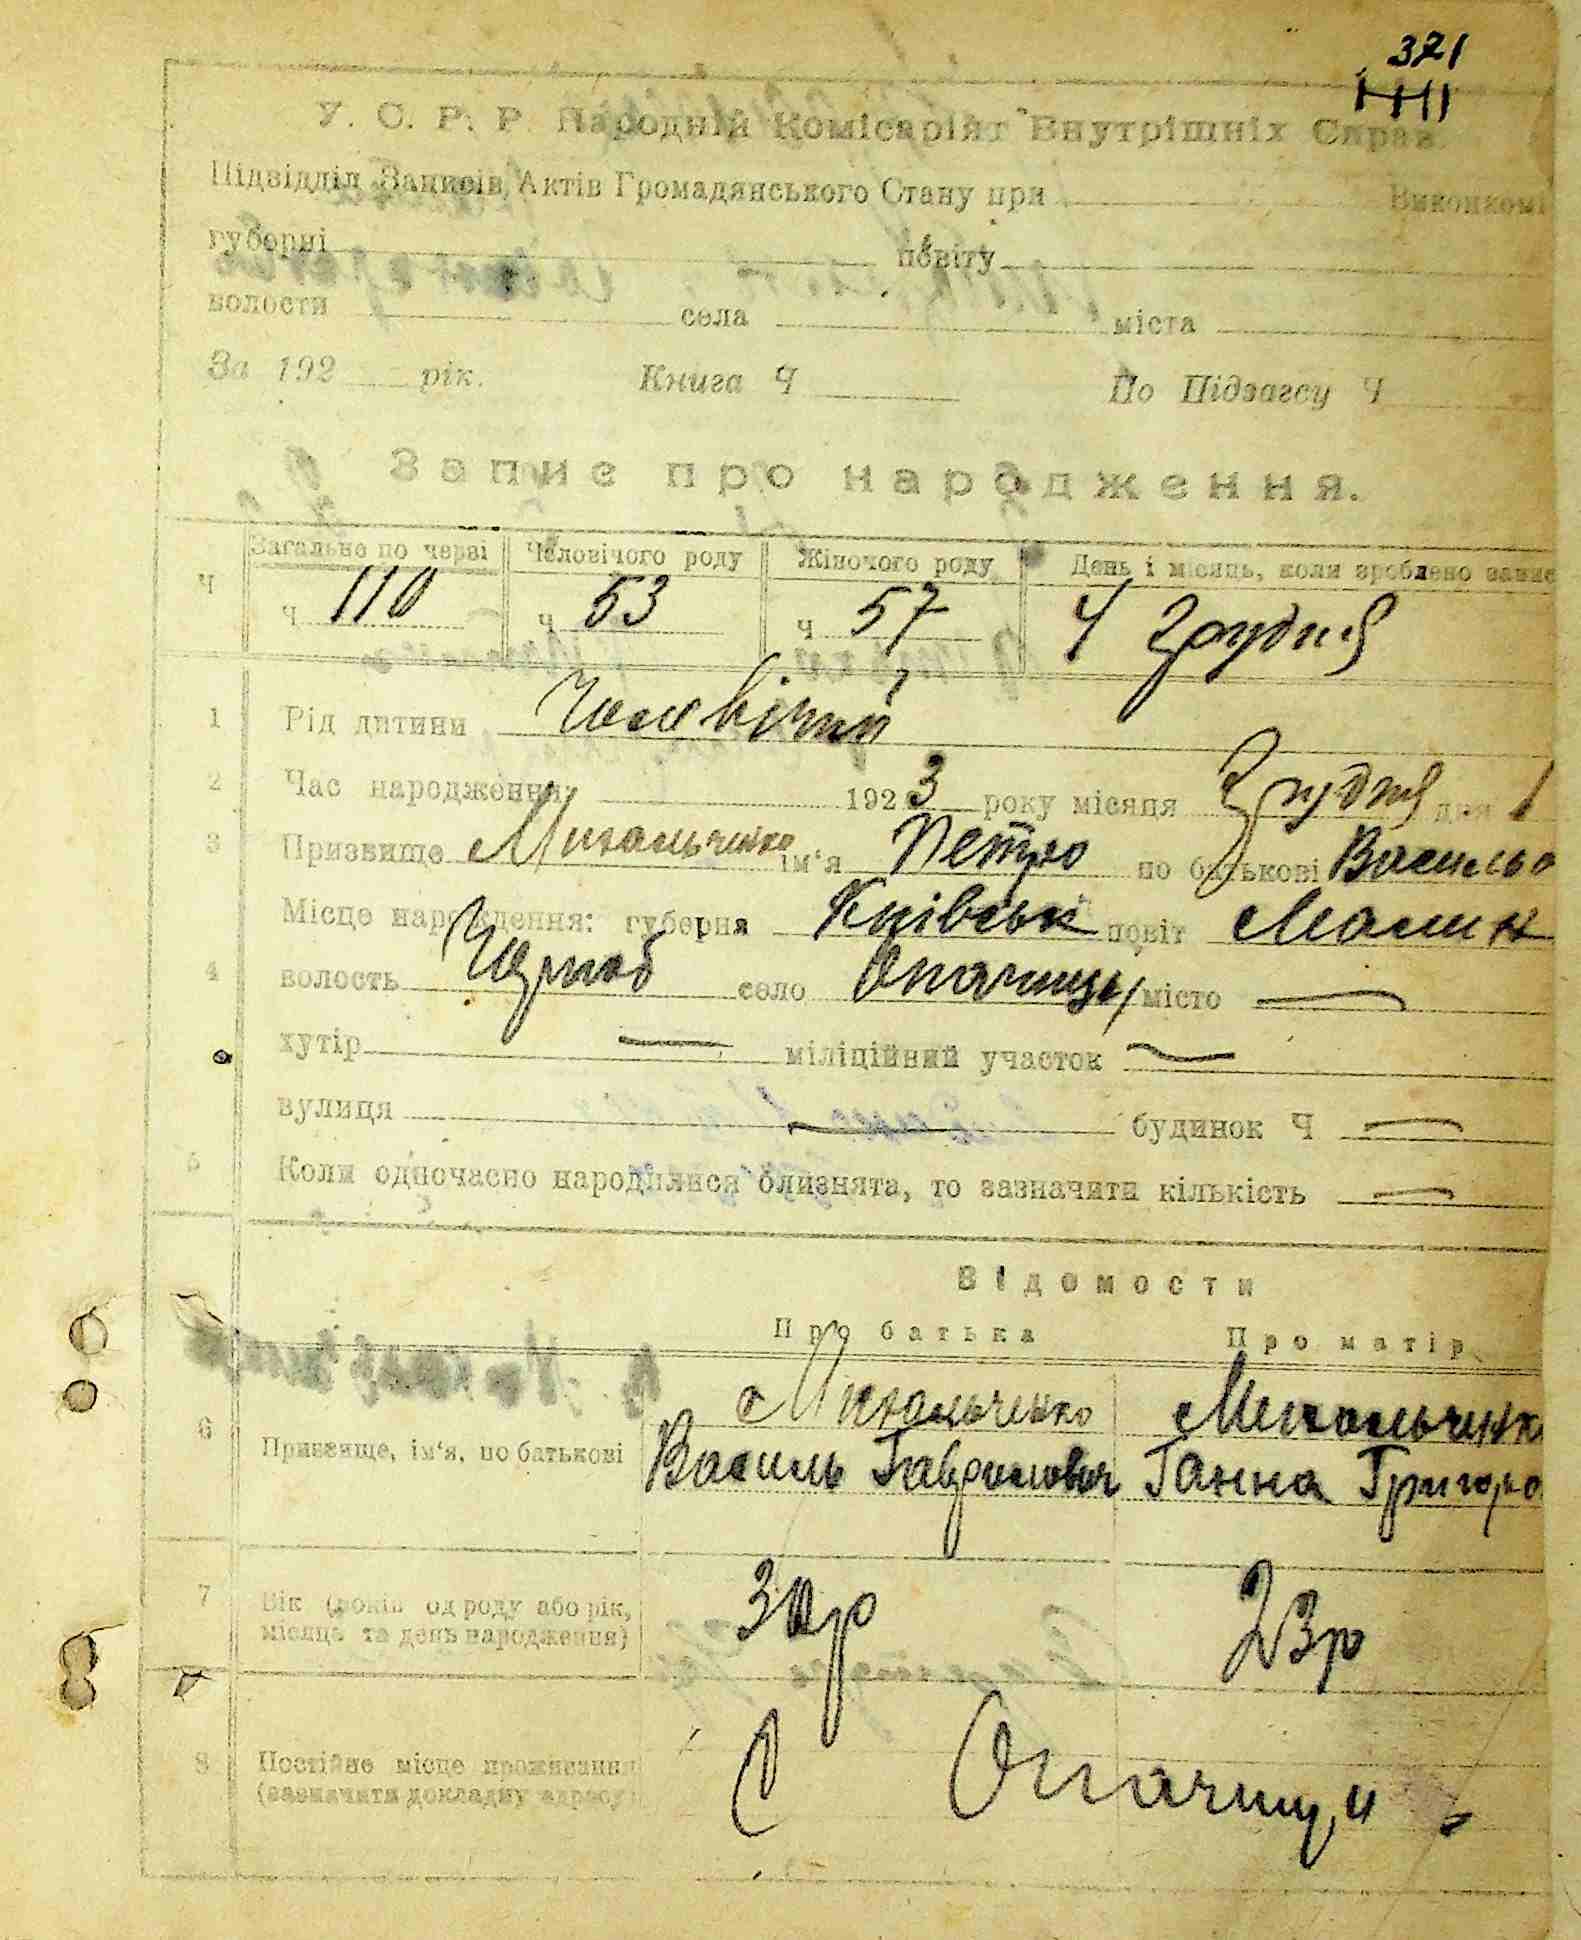 321
У. С. Р. Р. Народній Комісаріят Внутрішніх Справ
Підвідділ Записів Актів Громадянського Стану при Виконкомі
губерні повіту
волости села міста
За 192 рік. Книга Ч По Підзагсу Ч
Запис про народження.
Ч Загальне по черзі Чоловічого роду Жіночого роду День і місяць, коли зроблено запис
ч 110 ч 53 ч 57 4 Грудня
1 Рід дитини Чоловічий
2 Час народження: 1923 року місяця Грудня дня 1
3 Призвище Михальченко ім'я Петро по батькові Васильо
Місце народження: губерня Київськ повіт Малин
4 волость Чорноб село Опачиці місто —
хутір — міліційний участок —
вулиця — будинок Ч —
5 Коли одночасно народилися близнята, то зазначити кількість —
Відомости
Про батька Про матір
Михальченко Михальченк
6 Призвище, ім'я, по батькові Василь Гаврилович Ганна Григоро
7 Вік (років од роду або рік, 30р 23р
місяць та день народження)
8 Постійне місце проживання С Опачици
(зазначити докладну адресу)